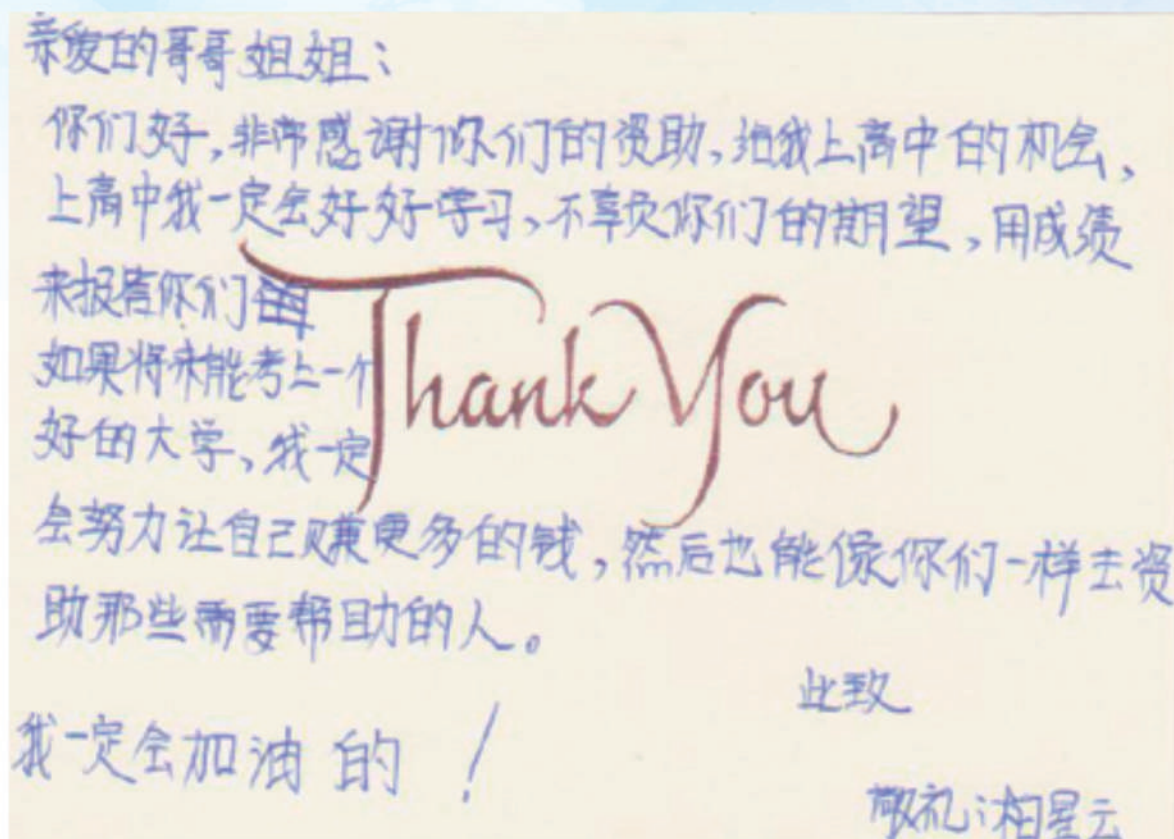 亲爱的哥哥姐姐：
你们好，非常感谢你们的资助，给我上高中的机会，
上高中我一定会好好学习，不辜负你们的期望，用成绩
来报答你们
如果将来能考上一个
好的大学，我一定
Thank You
会努力让自己赚更多的钱，然后也能像你们一样去资
助那些需要帮助的人。
此致
我一定会加油的！
敬礼：相星云